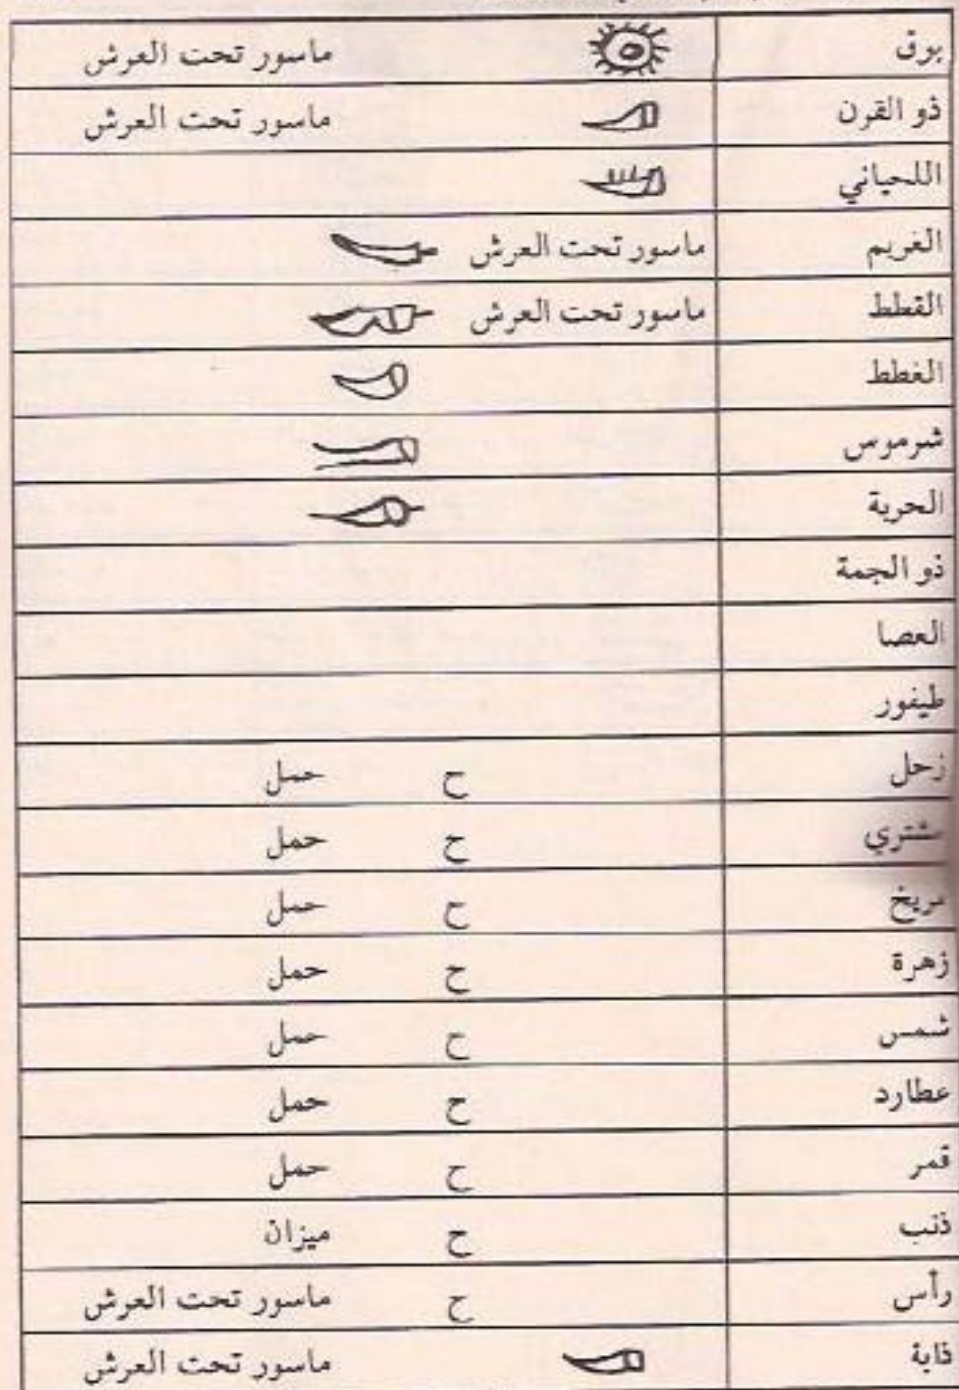 بوق ماسور تحت العرش
ذو القرن ماسور تحت العرش
اللحياني
الغريم ماسور تحت العرش
القطط ماسور تحت العرش
الغطط
شرموس
الحربة
ذو الجمة
العصا
طيفور
زحل ح حمل
مشتري ح حمل
مريخ ح حمل
زهرة ح حمل
شمس ح حمل
عطارد ح حمل
قمر ح حمل
ذنب ح ميزان
رأس ح ماسور تحت العرش
ذابة ماسور تحت العرش